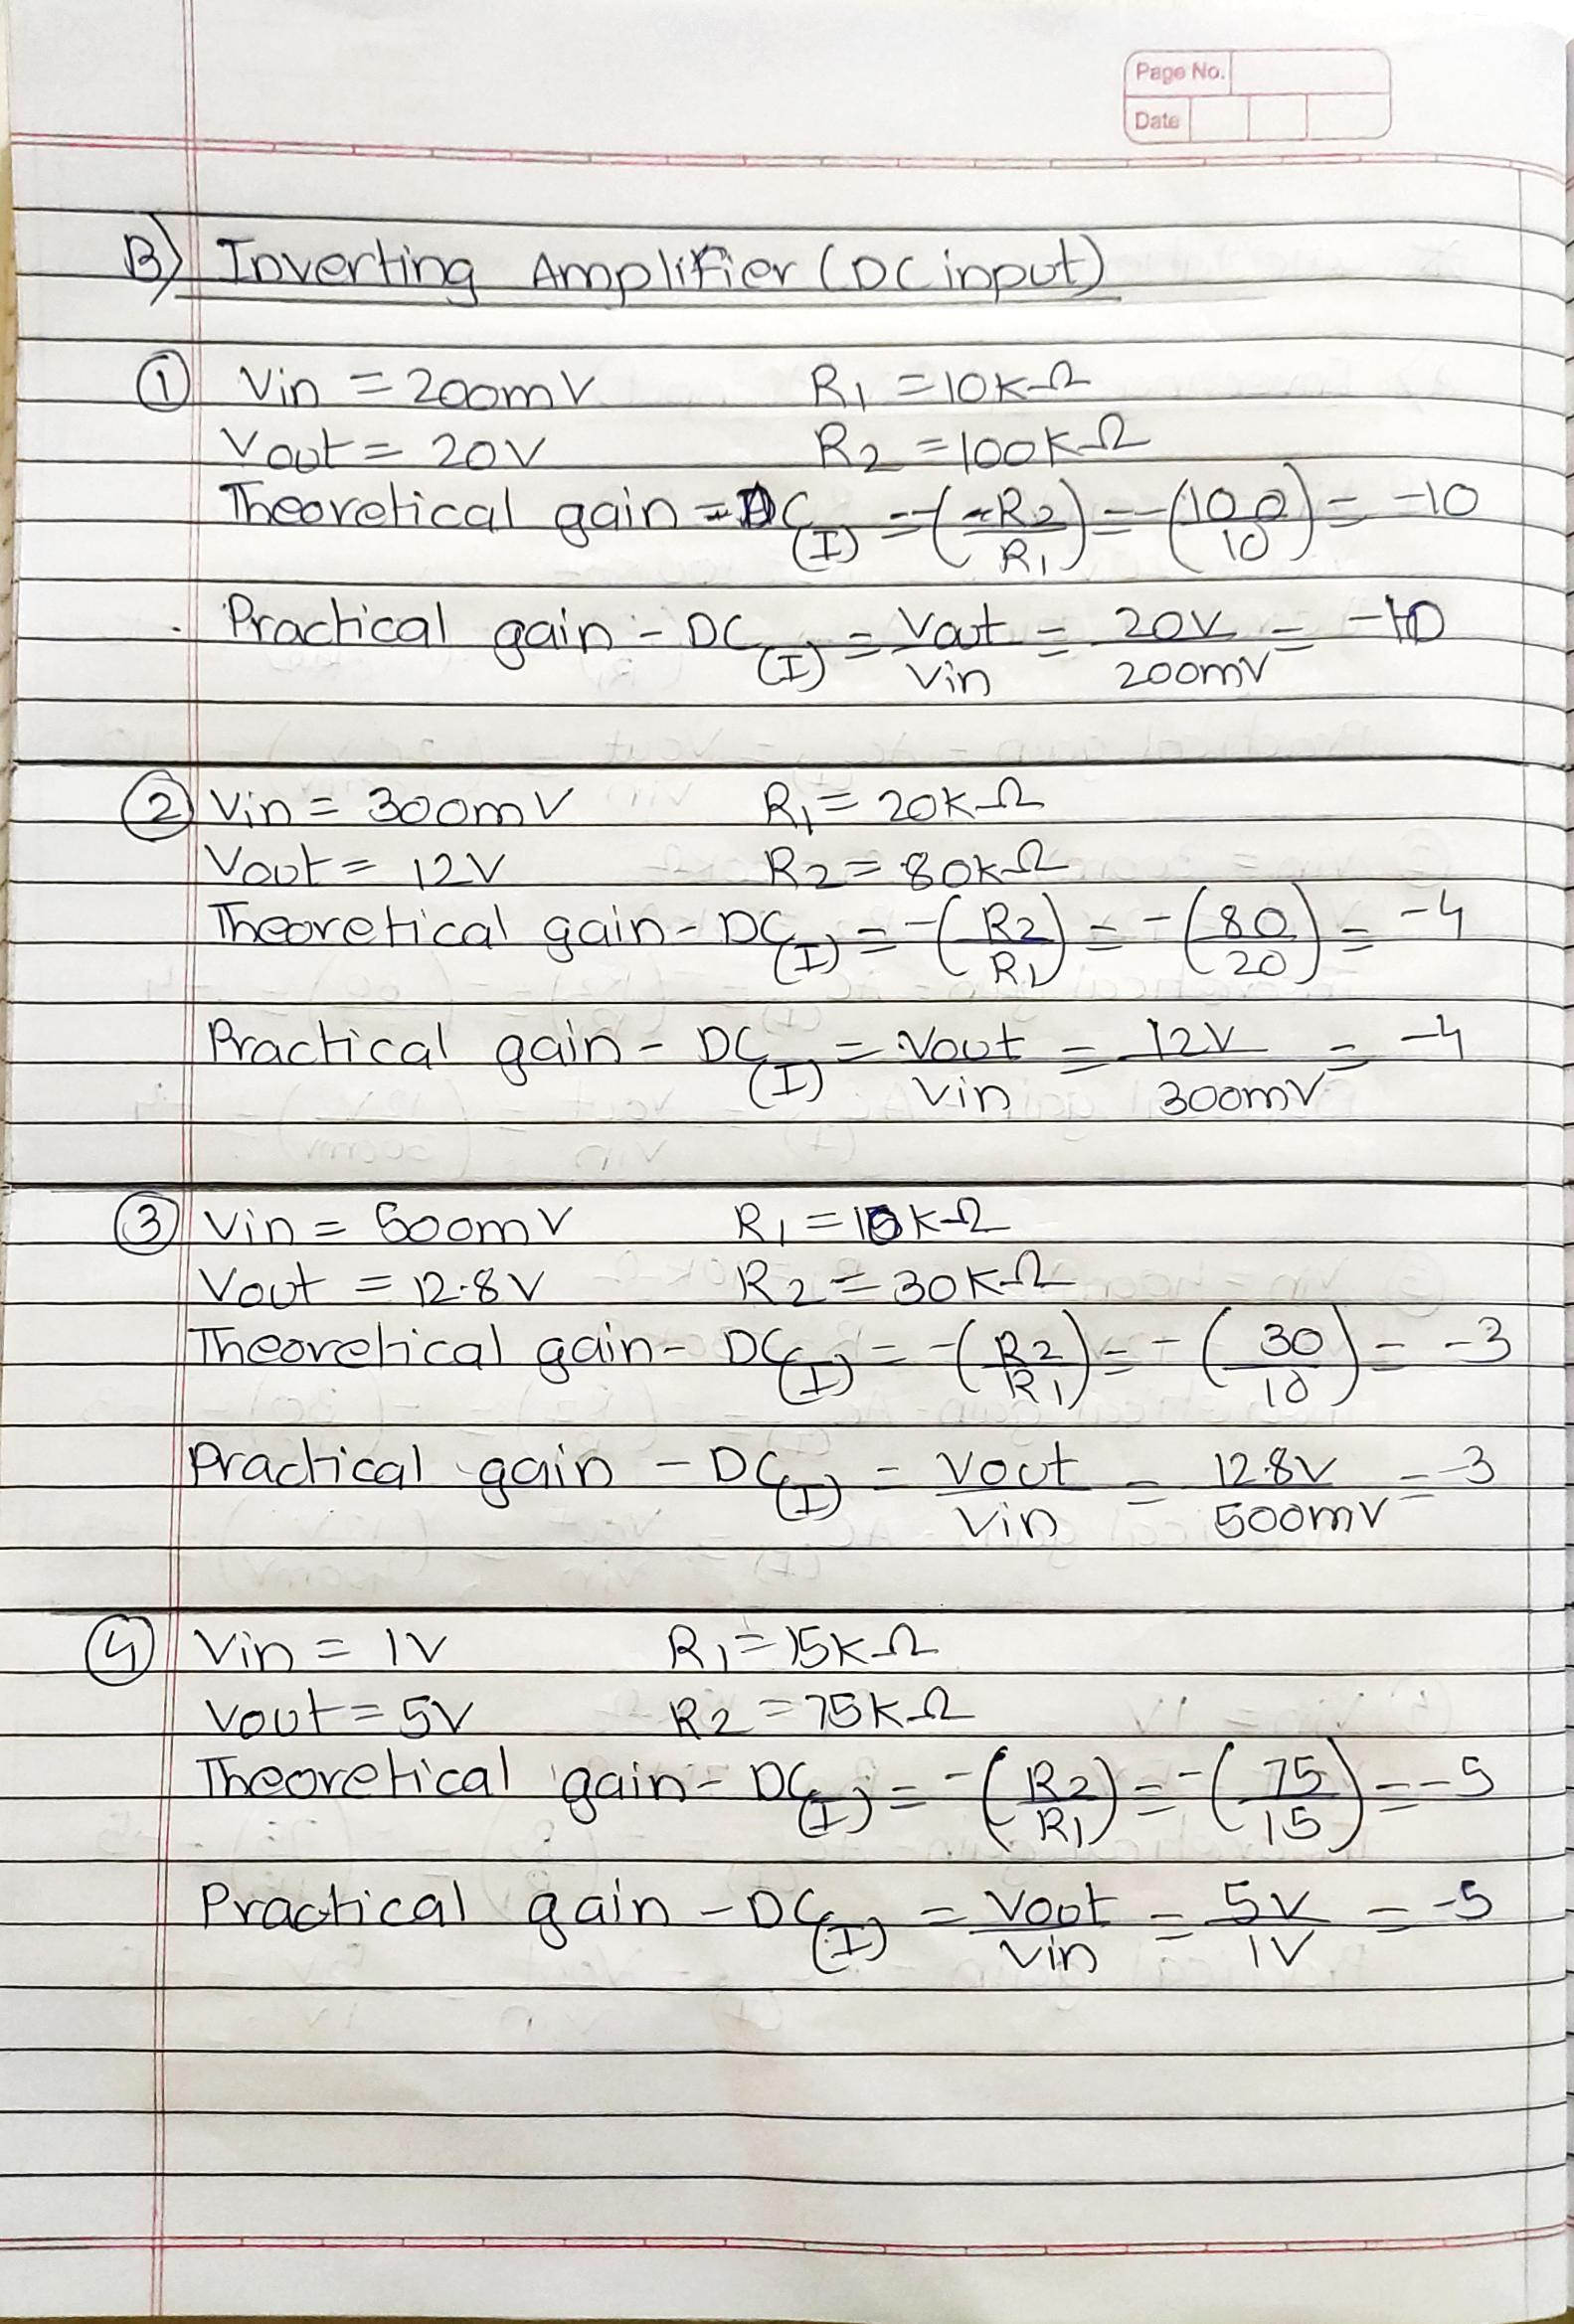 Page No.
Date
B) Inverting Amplifier (DC input)
① Vin = 200mV R1 = 10K-Ω
Vout = 20V R2 = 100K-Ω
Theoretical gain - DC(I) = -(-R2/R1) = -(100/10) = -10
Practical gain - DC(I) = Vout/Vin = 20V/200mV = -10
② Vin = 300mV R1 = 20K-Ω
Vout = 12V R2 = 80K-Ω
Theoretical gain - DC(I) = -(R2/R1) = -(80/20) = -4
Practical gain - DC(I) = Vout/Vin = 12V/300mV = -4
③ Vin = 500mV R1 = 10K-Ω
Vout = 12.8V R2 = 30K-Ω
Theoretical gain - DC(I) = -(R2/R1) = -(30/10) = -3
Practical gain - DC(I) = Vout/Vin = 12.8V/500mV = -3
④ Vin = 1V R1 = 15K-Ω
Vout = 5V R2 = 75K-Ω
Theoretical gain - DC(I) = -(R2/R1) = -(75/15) = -5
Practical gain - DC(I) = Vout/Vin = 5V/1V = -5